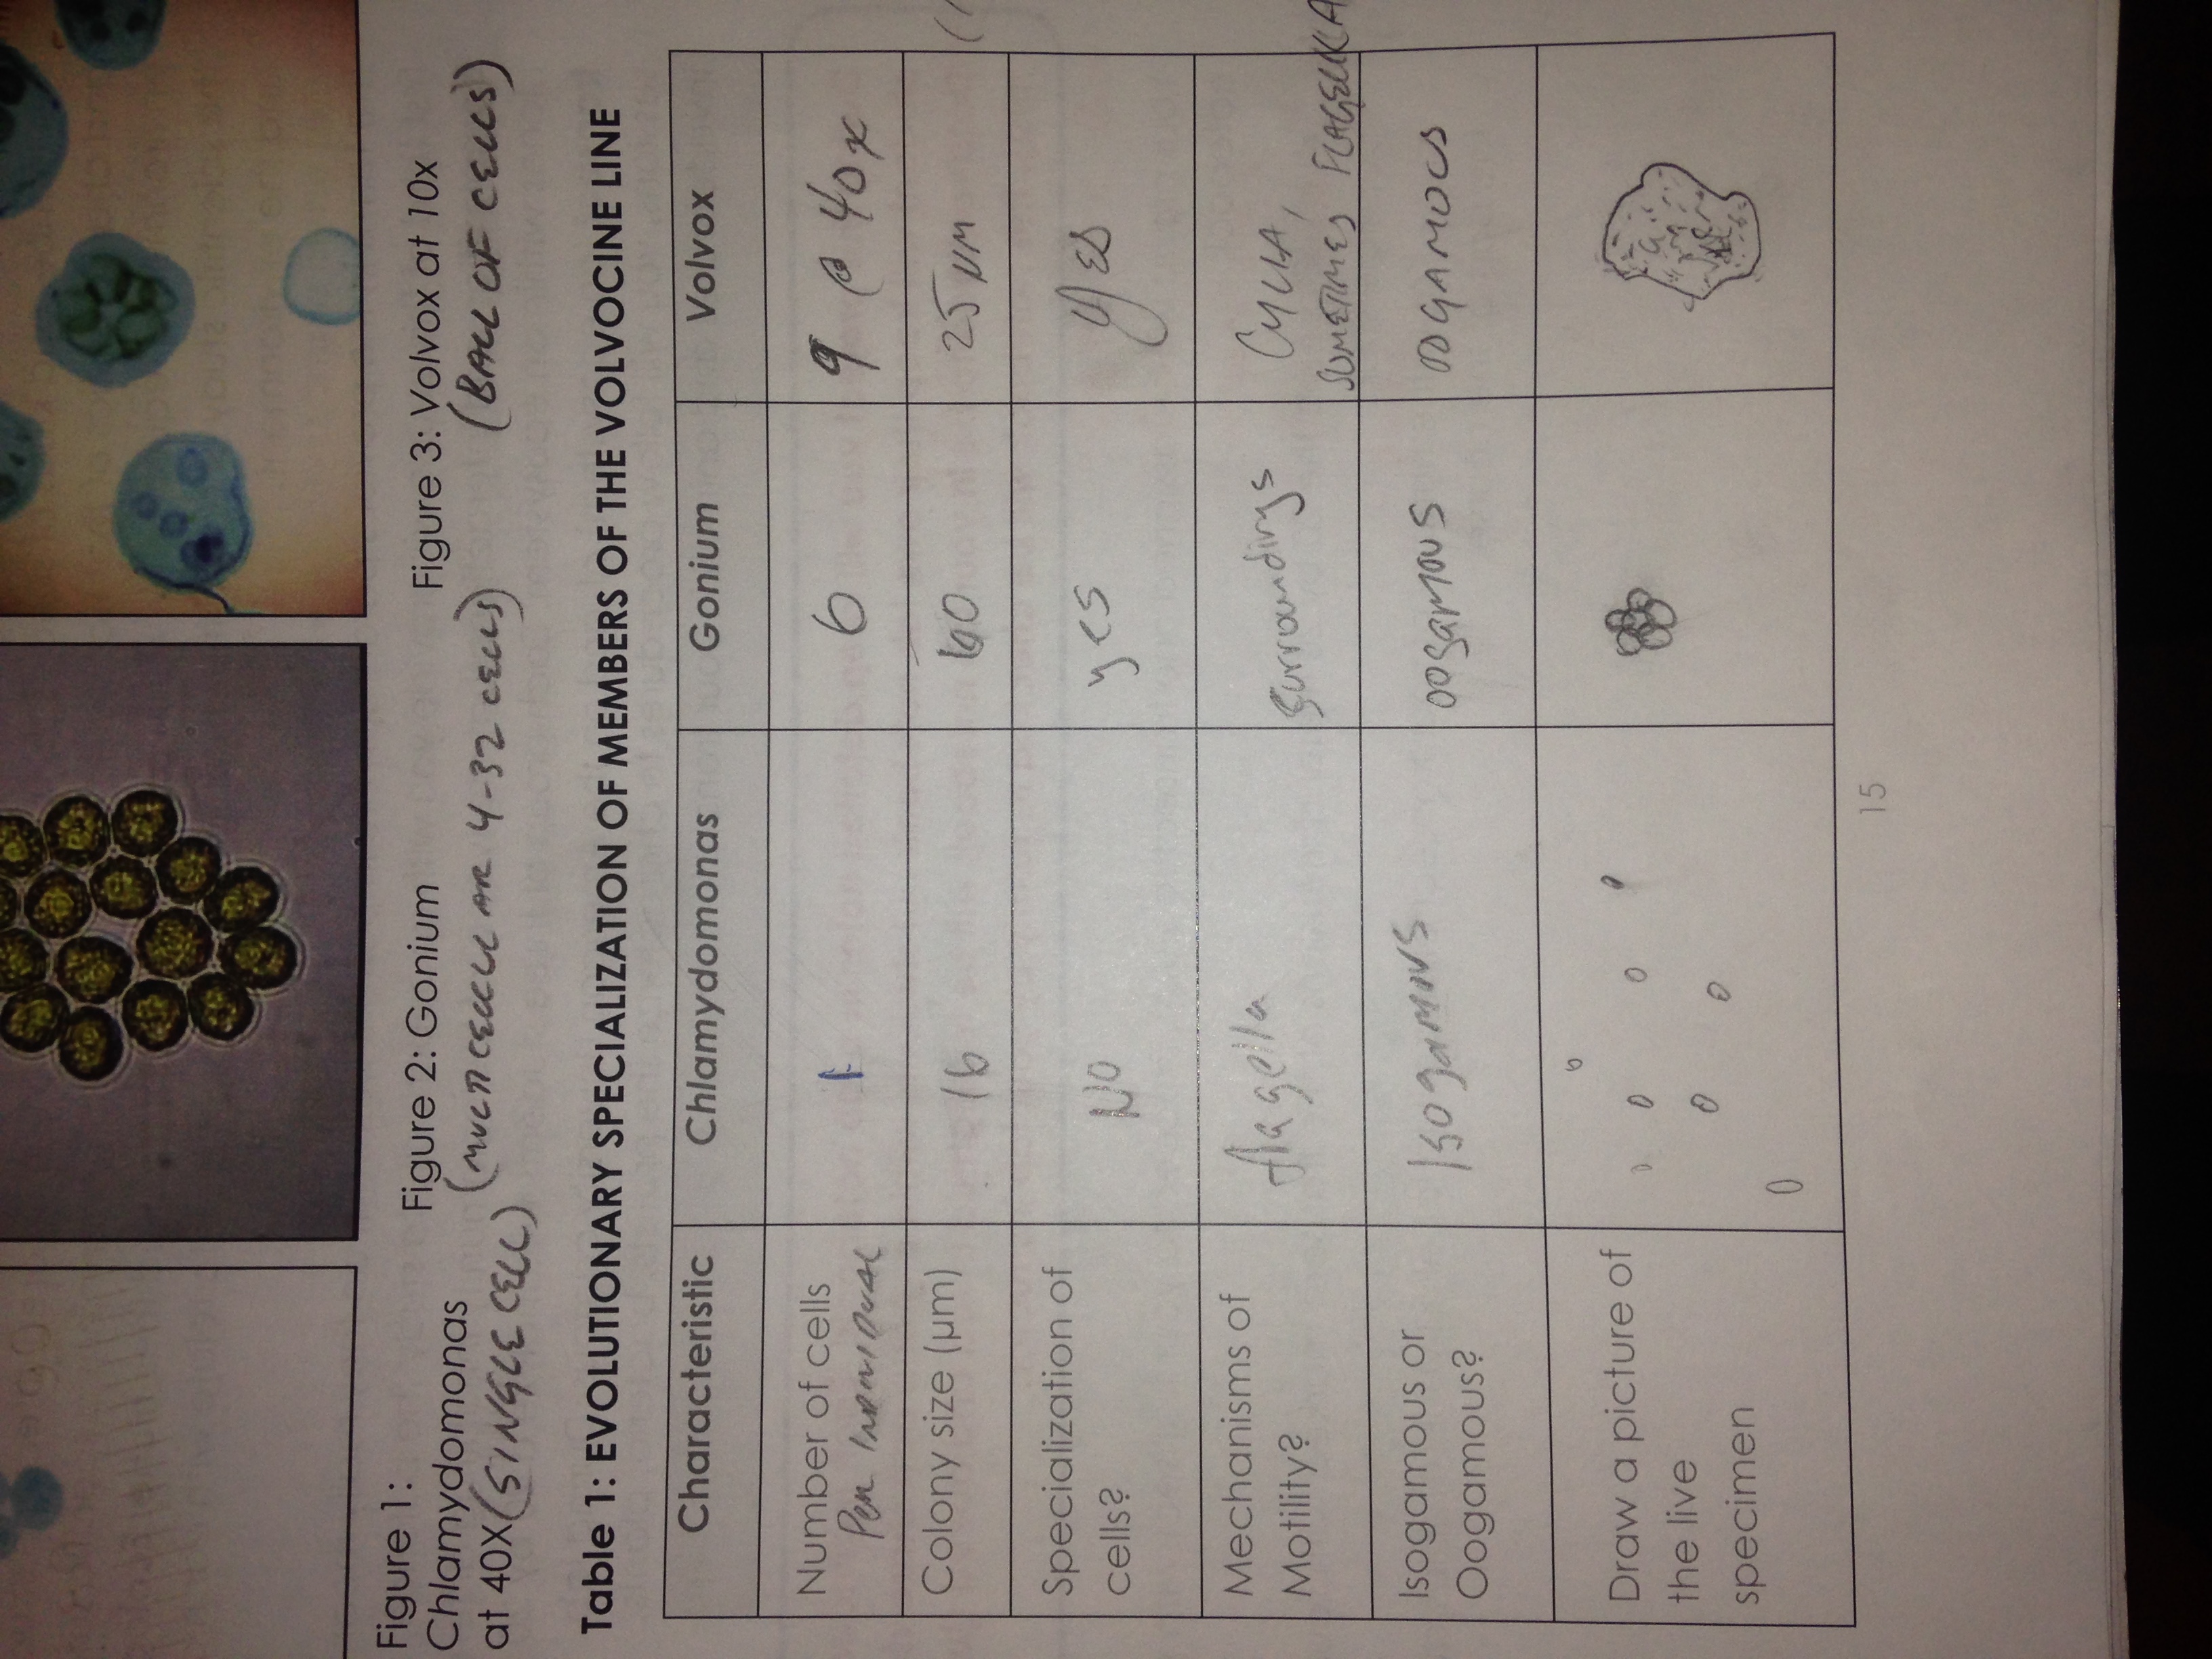 Figure 1:
Chlamydomonas
at 40X (SINGLE CELL)
Figure 2: Gonium
(MULTICELLULAR 4-32 CELLS)
Figure 3: Volvox at 10x
(BALL OF CELLS)
Table 1: EVOLUTIONARY SPECIALIZATION OF MEMBERS OF THE VOLVOCINE LINE
Characteristic Chlamydomonas Gonium Volvox
Number of cells 1 6 9 @ 40x
PER INDIVIDUAL
Colony size (µm) 16 60 25 µM
Specialization of NO yes yes
cells?
Mechanisms of flagella surroundings CYLIA,
Motility? SOMETIMES FLAGELLLA
Isogamous or Isogamous oogamous OOGAMOUS
Oogamous?
Draw a picture of
the live
specimen
15